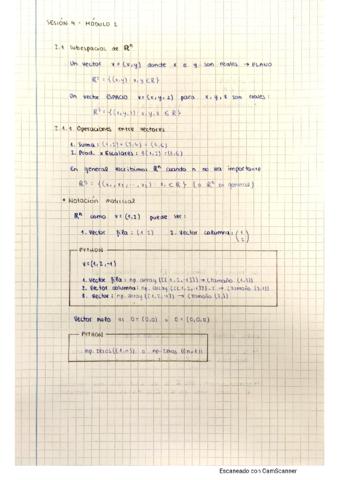 SESIÓN 4 - MÓDULO 2
2.1 Subespacios de Rⁿ
Un vector v = (x,y) donde x e y son reales → PLANO
R² = {(x,y) x,y ∈ R}
Un vector ESPACIO v = (x,y,z) para x, y, z son reales:
R³ = {(x,y,z): x,y,z ∈ R}
2.1.1 Operaciones entre vectores
1. Suma: (1,2) + (3,4) = (4,6)
2. Prod. x Escalares:
En general escribimos Rⁿ cuando n no sea importante
(o Rⁿ en general)
* Notación matricial
Rⁿ como v = (1,2) puede ser:
1. Vector fila: (1 2) 2. Vector columna: (1 2)
PYTHON
v = (1, 2, -1)
1. Vector fila: np. array ([[1, 2, -1]]) → (tamaño (1,3))
2. Vector columna: np. array → (tamaño (3,1))
3. Vector: np. array → (tamaño
Vector nulo es 0 = (0,0) o 0 = (0,0,0)
PYTHON
np. zeros((1,n)) o np. zeros ((n,1))
Escaneado con CamScanner